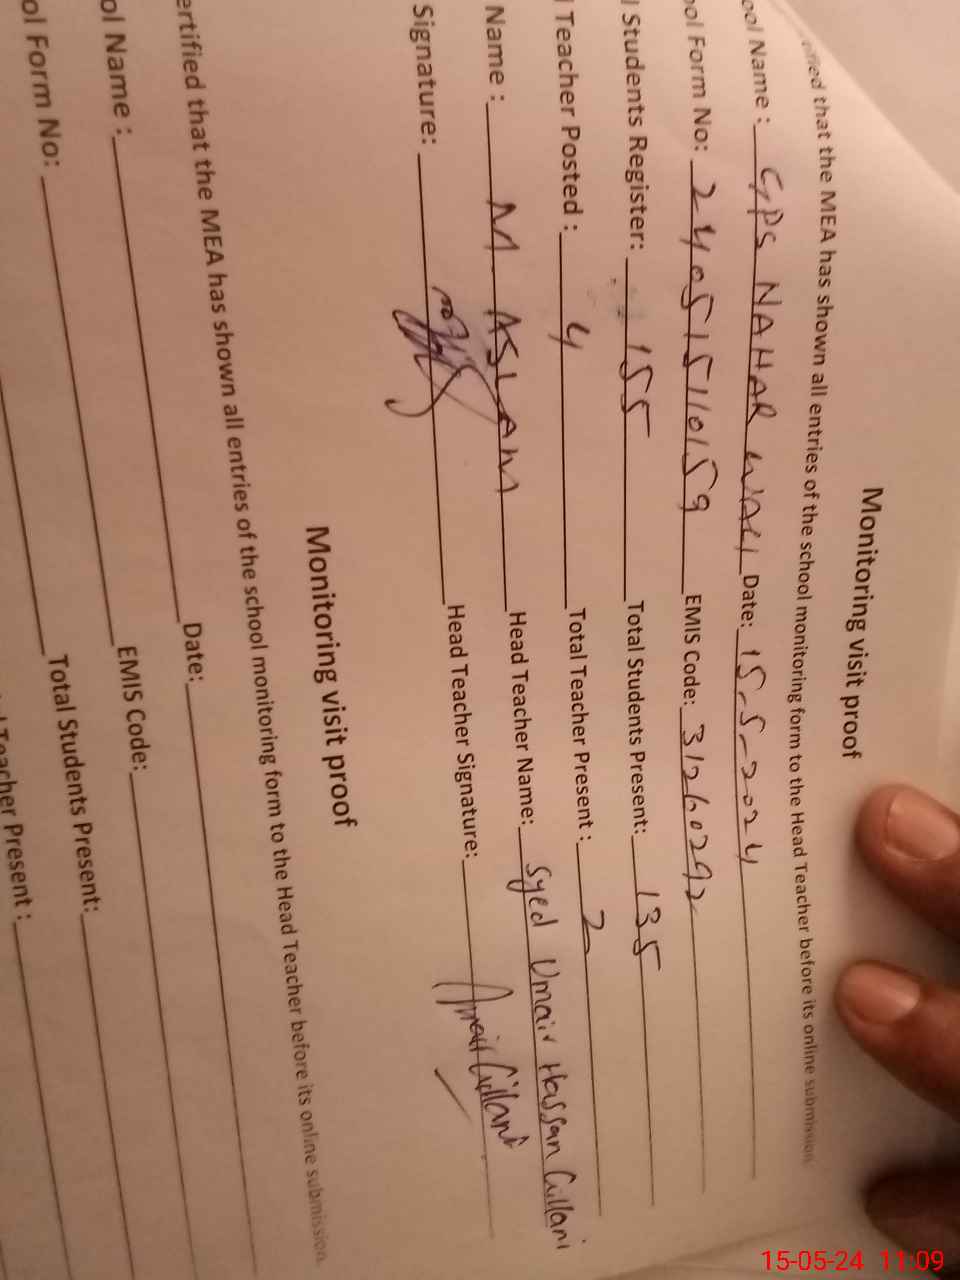 Monitoring visit proof
ertified that the MEA has shown all entries of the school monitoring form to the Head Teacher before its online submission
ool Name : GPS NAHAR WALI Date: 15-5-2024
ool Form No: 240515110159 EMIS Code: 31260292
l Students Register: 155 Total Students Present: 135
l Teacher Posted : 4 Total Teacher Present : 2
Name : M ASLAM Head Teacher Name: Syed Umair Hassan Gillani
Signature: Head Teacher Signature: Umair Gillani
Monitoring visit proof
ertified that the MEA has shown all entries of the school monitoring form to the Head Teacher before its online submission.
ol Name : Date:
ol Form No: EMIS Code:
Total Students Present:
l Teacher Present :
15-05-24 11:09